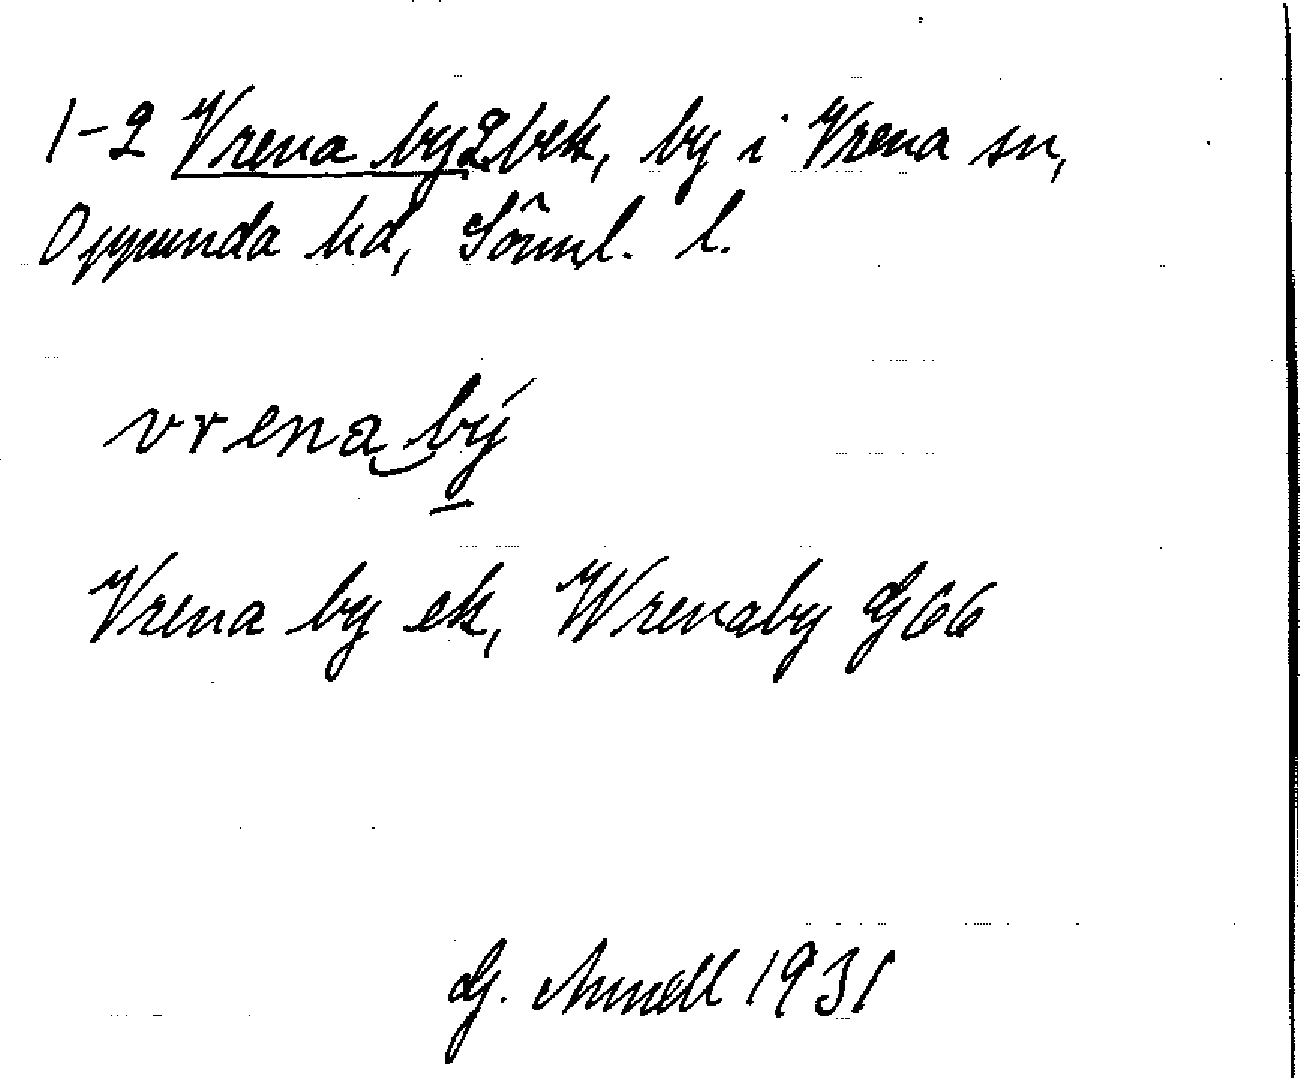 1-2 Vrena by 2 bek, by i Vrena sn,
Oppunda hd, Sörml. l.
vrena‿bý
Vrena by ek, Wrenaby G 66
G. Annell 1931